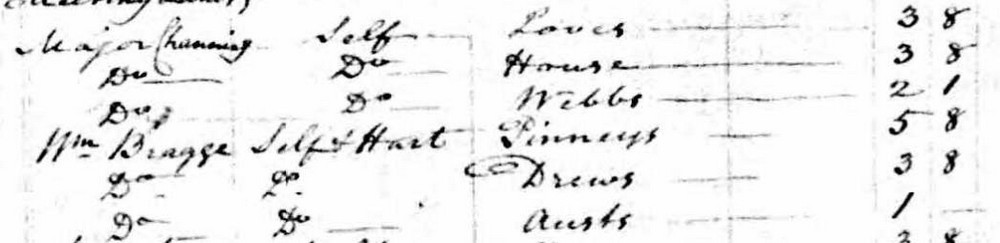 Major Channing Self Loves 3 8
Do Do House 3 8
Do Do Webbs 2 1
Wm Bragge Self & Hart Pinneys 5 8
Do Do Drews 3 8
Do Do Austs 1
3 8